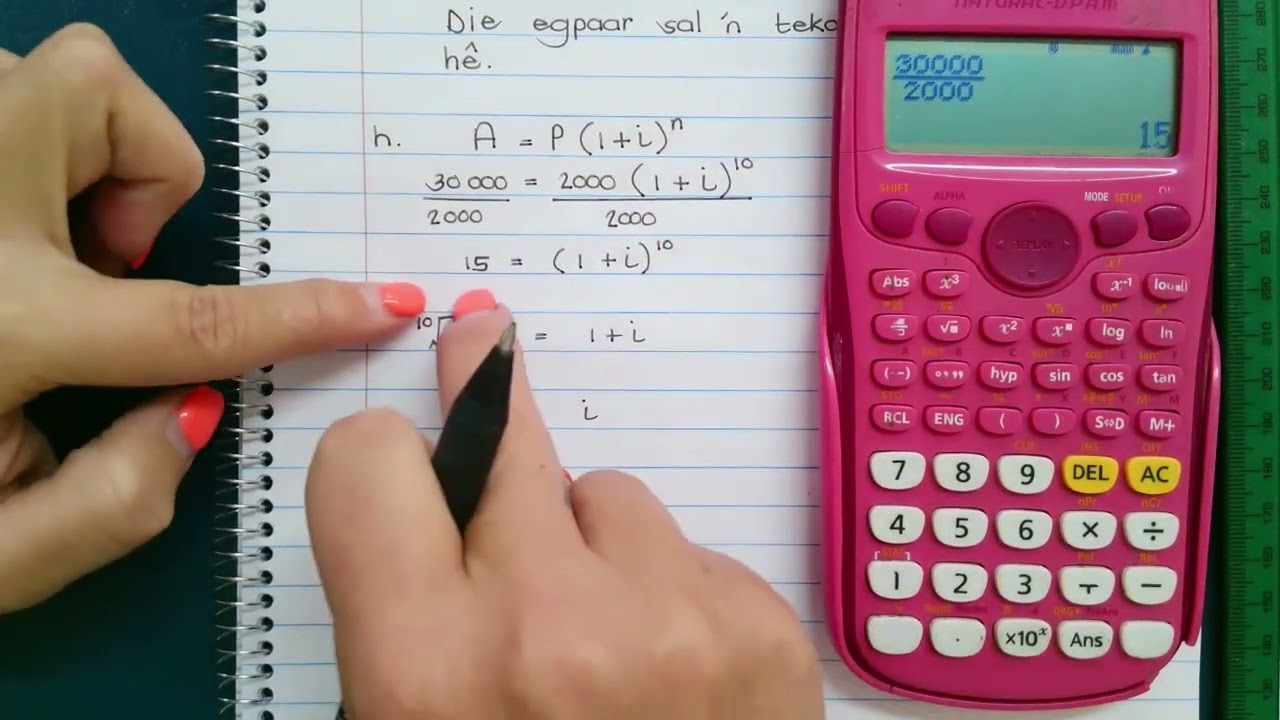 Die egpaar sal 'n
hê.
h. A = P(1+i)ⁿ
30 000 = 2000 (1+i)¹⁰
2000 2000
15 = (1+i)¹⁰
10 = 1+i
i
NATURAL-V.P.A.M.
30000
2000
15
SHIFT ALPHA REPLAY MODE SETUP ON
Abs x³ x⁻¹ log
√ x² log ln
(−) hyp sin cos tan
RCL ENG ( ) S⇔D M+
7 8 9 DEL AC
4 5 6 × ÷
1 2 3 −
. ×10ˣ Ans